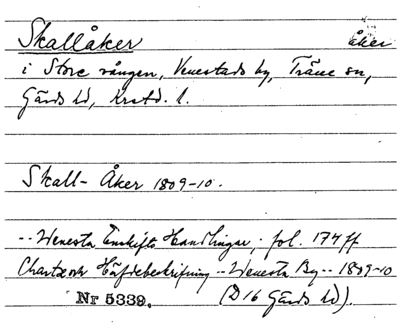 Skallåker åker
i Store vången, Venestads by, Träne sn,
Gärds hd, Krstd. l.
Skall-Åker 1809-10.
--Wenesta Enskifts Handlingar, fol. 174 ff
Charta och Häfdebeskrifning -- Wenesta By -- 1809-10
Nr 5339. (D16 Gärds hd).